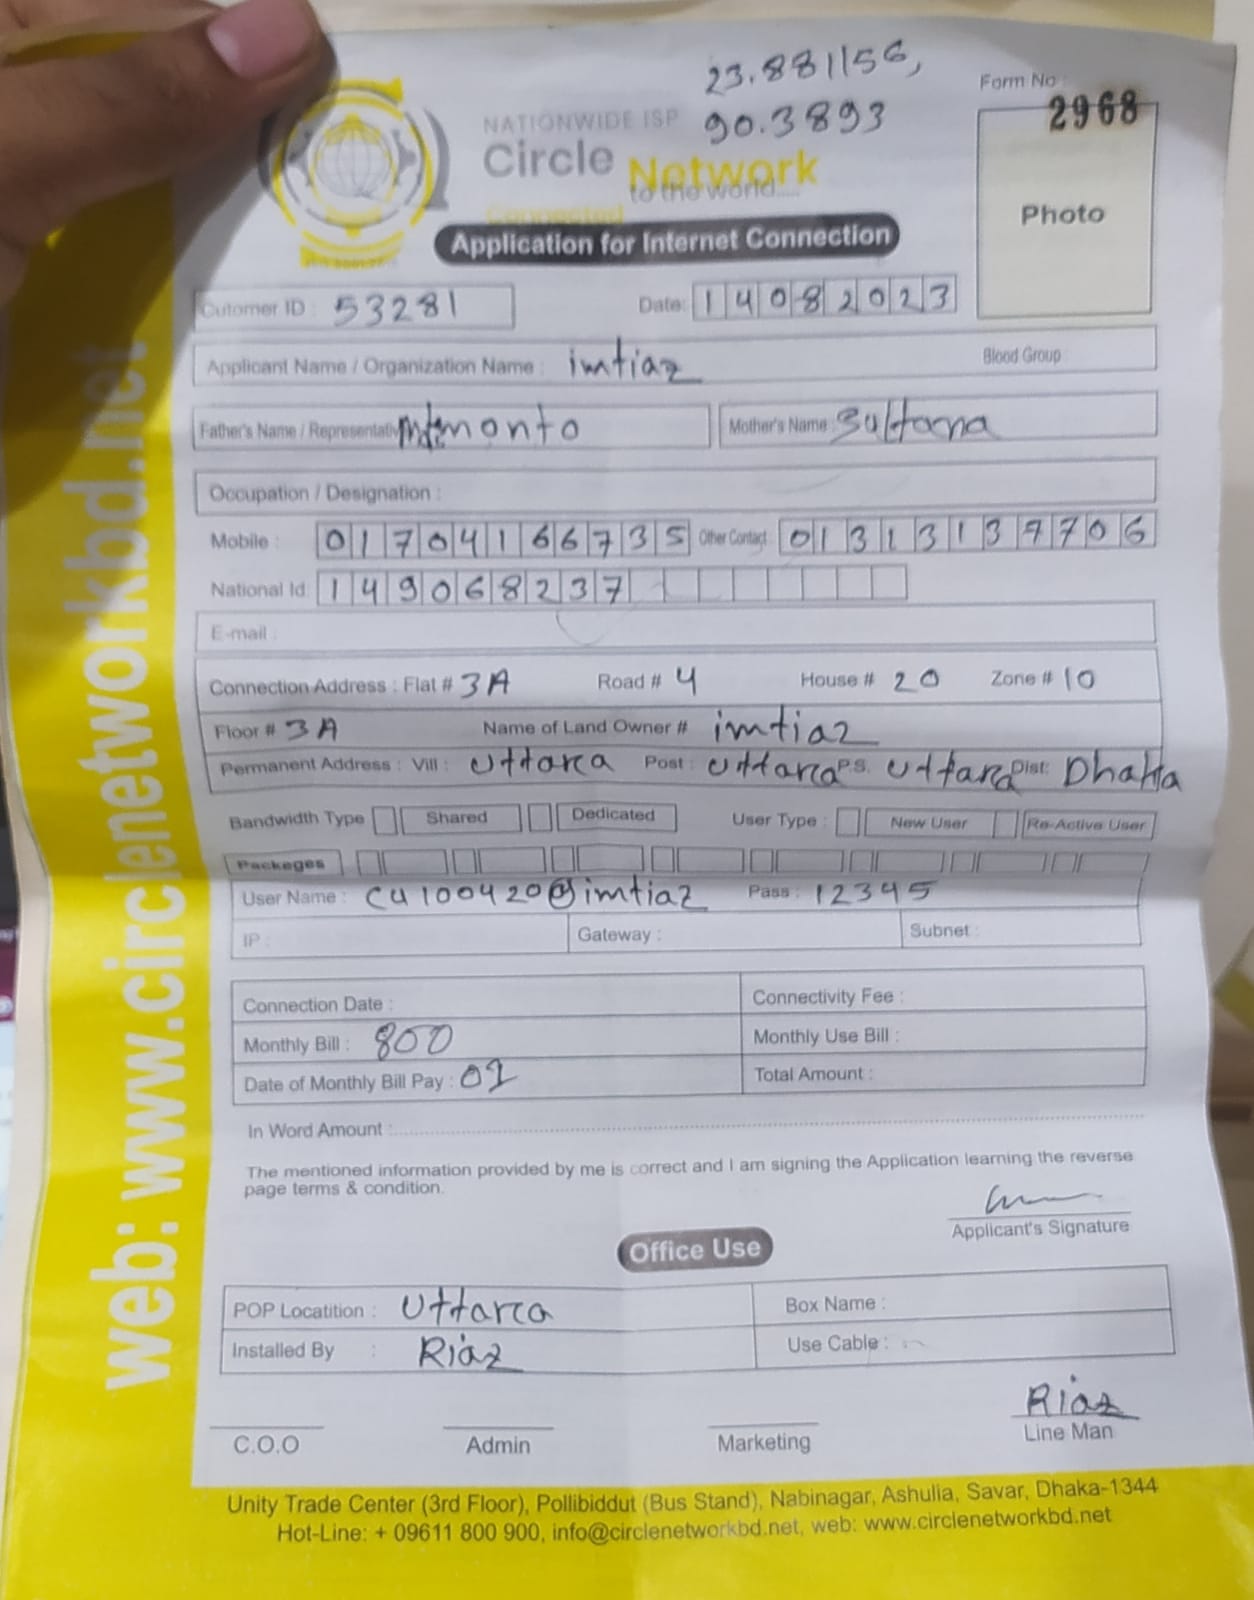 23.881156,
90.3893
Form No :
2968
NATIONWIDE ISP
Circle Network
Connected to the world.....
Photo
Application for Internet Connection
Cutomer ID : 53281 Date: 14082023
Applicant Name / Organization Name : imtiaz Blood Group :
Father's Name / Representati Mother's Name : Sultana
Occupation / Designation :
Mobile : 01704166735 Other Contact : 01313139706
National Id: 149068237
E-mail :
Connection Address : Flat # 3A Road # 4 House # 20 Zone # 10
Floor # 3A Name of Land Owner # imtiaz
Permanent Address : Vill : Uttara Post : Uttara P.S. Uttara Dist: Dhaka
Bandwidth Type Shared Dedicated User Type : New User Re-Active User
Packeges
User Name : C4100420@imtiaz Pass : 12345
IP : Gateway : Subnet :
Connection Date : Connectivity Fee :
Monthly Bill : 800 Monthly Use Bill :
Date of Monthly Bill Pay : 01 Total Amount :
In Word Amount :
The mentioned information provided by me is correct and I am signing the Application learning the reverse
page terms & condition.
Applicant's Signature
Office Use
POP Locatition : Uttara Box Name :
Installed By : Riaz Use Cable :
Riaz
C.O.O Admin Marketing Line Man
Unity Trade Center (3rd Floor), Pollibiddut (Bus Stand), Nabinagar, Ashulia, Savar, Dhaka-1344
Hot-Line: + 09611 800 900, info@circlenetworkbd.net, web: www.circlenetworkbd.net
web: www.circlenetworkbd.net